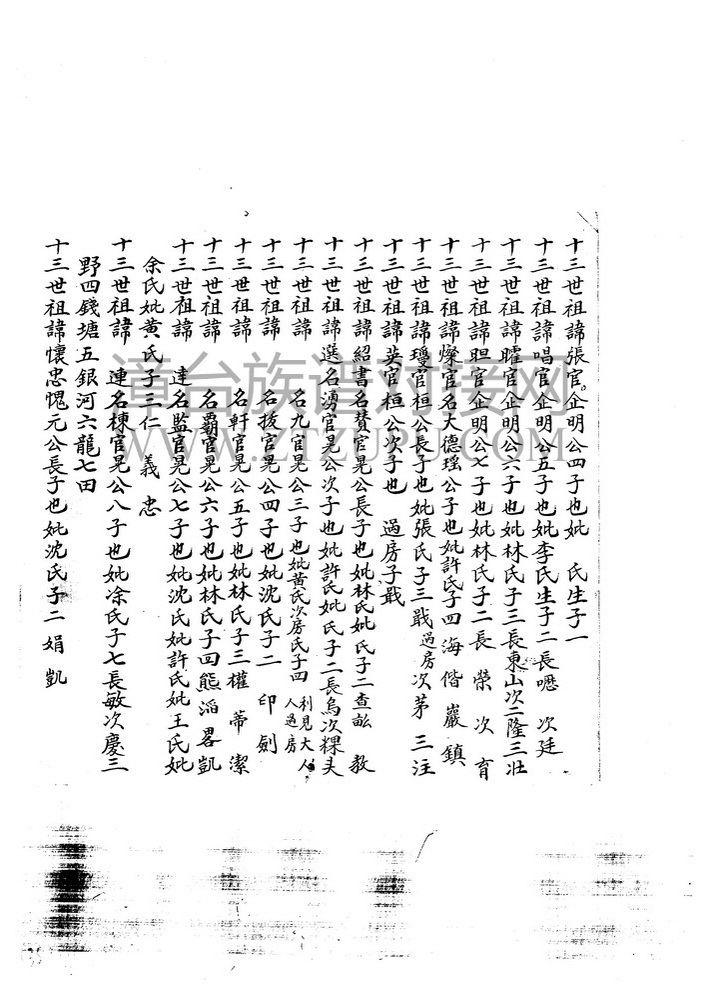 十三世祖諱張官企明公四子也妣　氏生子一
十三世祖諱唱官企明公五子也妣李氏生子二長嗯　次廷
十三世祖諱曜官企明公六子也妣林氏子三長東山次二隆三壯
十三世祖諱旦官企明公七子也妣林氏子二長榮　次育
十三世祖諱燦官名大德瑤公子也妣許氏子四海偕巖鎮
十三世祖諱瓊官桓公長子也妣張氏子三戢過房次茅三注
十三世祖諱英官桓公次子也　過房子戢
十三世祖諱紹書名贊官晃公長子也妣林氏妣氏子二查　教
十三世祖諱選名湧官晃公次子也妣許氏妣氏子二長烏次粿夫
十三世祖諱　名九官晃公三子也妣黃氏次房氏子四利見大人人過房
十三世祖諱　名拔官晃公四子也妣沈氏子二　印劍
十三世祖諱　名軒官晃公五子也妣林氏子三權蒂潔
十三世祖諱　名霸官晃公六子也妣林氏子四熊滔畧凱
十三世祖諱　達名監官晃公七子也妣沈氏妣許氏妣王氏妣
余氏妣黃氏子三仁　義　忠
十三世祖諱　連名棟官晃公八子也妣凃氏子七長敏次慶三
野四錢塘五銀河六龍七田
十三世祖諱懷忠愧元公長子也妣沈氏子二娟　凱
漳台族谱对接网
WWW.ZTZUPU.COM